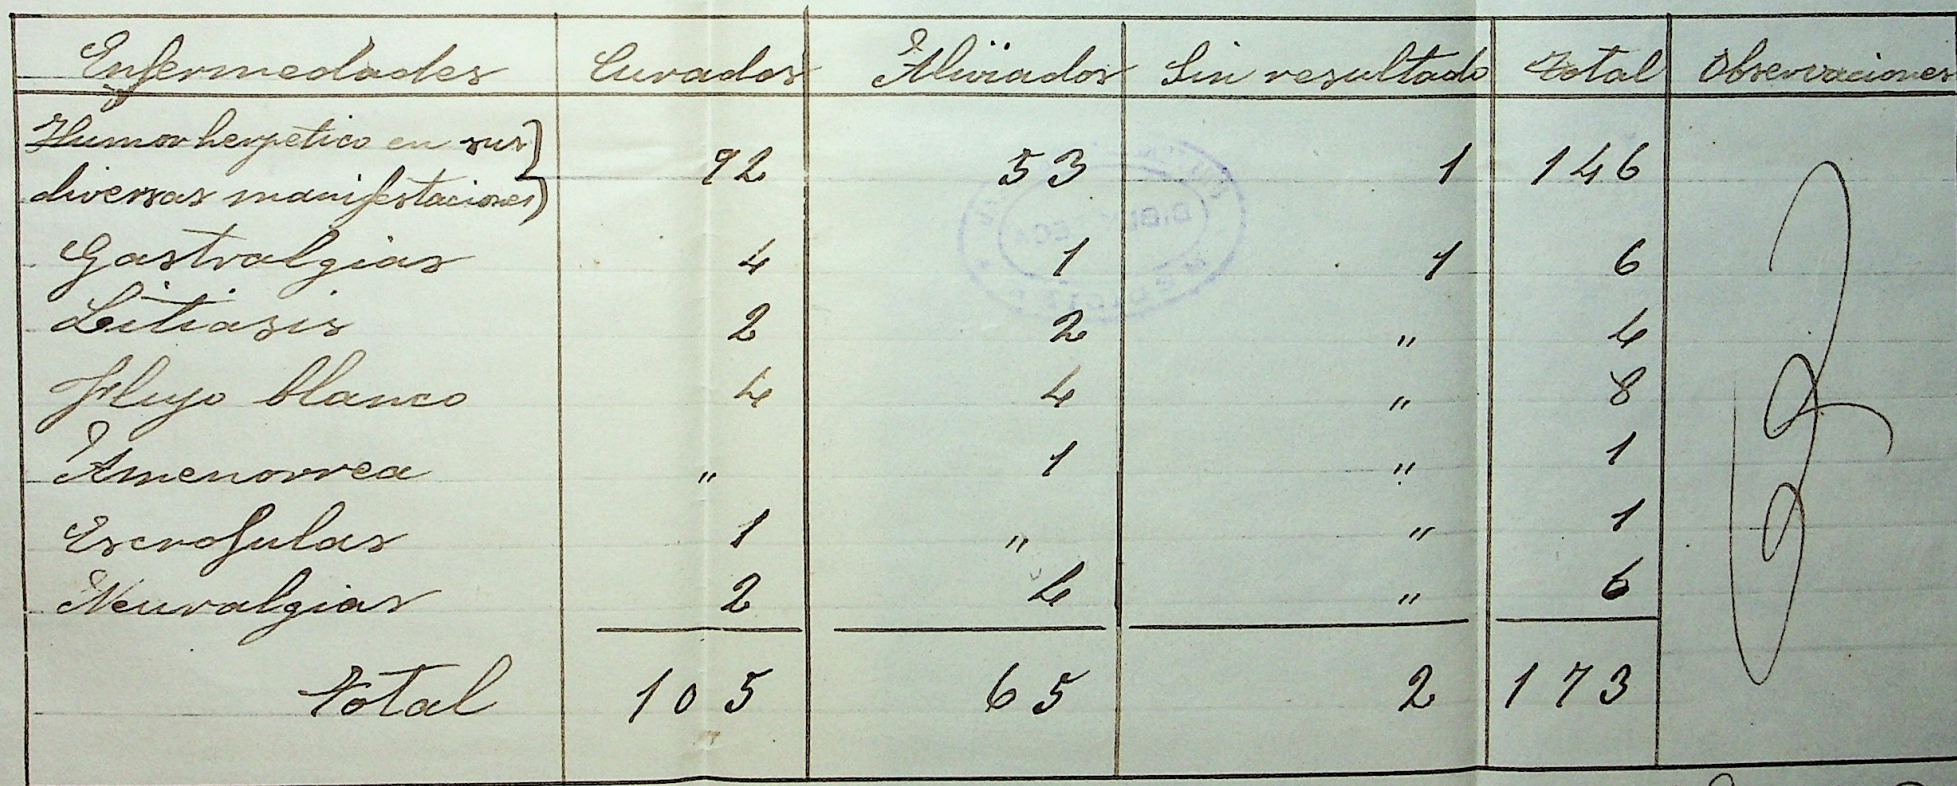 Enfermedades Curados Aliviados Sin resultado Total Observaciones
Humor herpetico en sus
92 53 1 146
diversas manifestaciones
Gastralgias 4 1 1 6
Litiasis 2 2 " 4
Flujo blanco 4 4 " 8
Amenorrea " 1 " 1
Escrofulas 1 " " 1
Neuralgias 2 4 " 6
Total 105 65 2 173